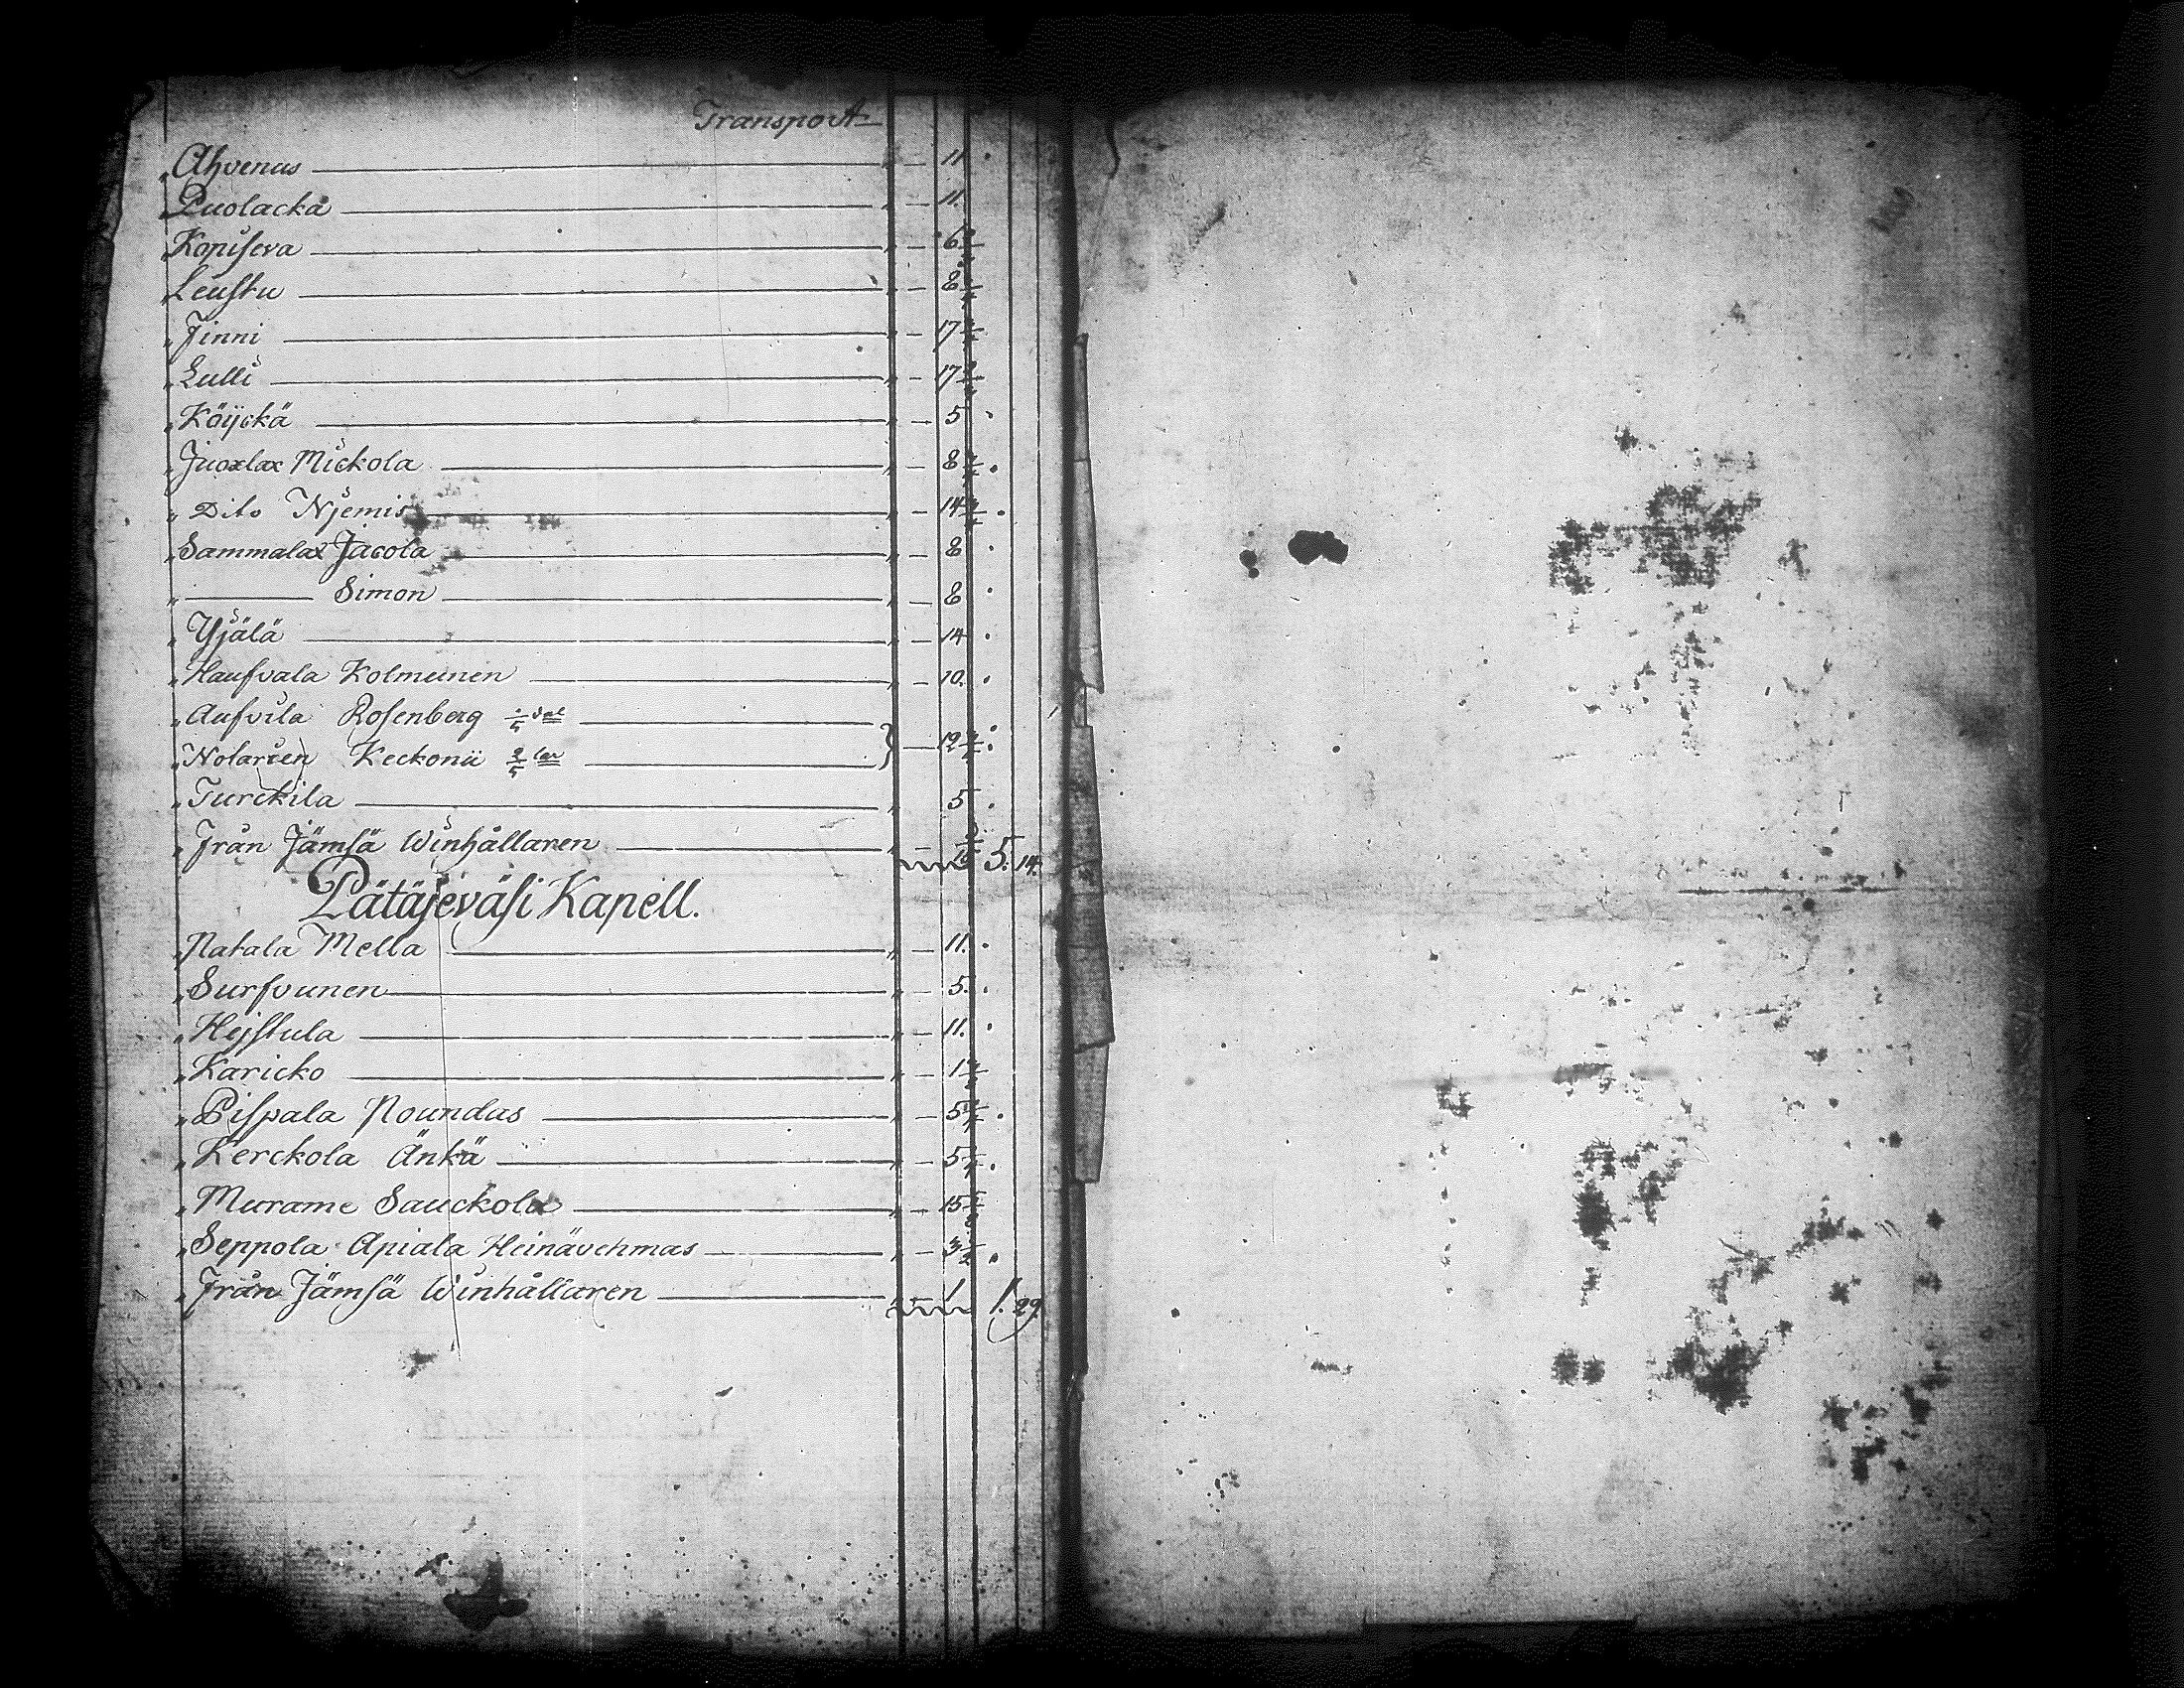 Transport
„ Ahvenus — 11 .
„ Puolacka — 11.
„ Kopiseva — 6
„ Leustu — 8
„ Finni — 17
„ Lulli — 17
„ Köijckä — 5 .
„ Juoxlax Mickola — 8
„ Dito Njemis — 14
„ Sammalax Jacola — 8 .
„ — Simon — 8 .
„ Yjälä — 14 .
„ Haufvala Kolmunen — 10. .
„ Aufvila Rosenberg
„ Notarien Keckonii — 12
„ Turckila — 5 .
„ Från Jämsä Winhållaren — 5. 14.
Pätäjeväsi Kapell.
„ Natala Mella — 11. .
„ Surfvunen — 5. .
„ Hejstula — 11. .
„ Karicko — 1
„ Pispala Noundas — 5
„ Kerckola Änkä — 5
„ Murame Sauckola — 15
„ Seppola Apiala Heinävehmas — 3 1/2
„ Från Jämsä Winhållaren — 1 1. 29.